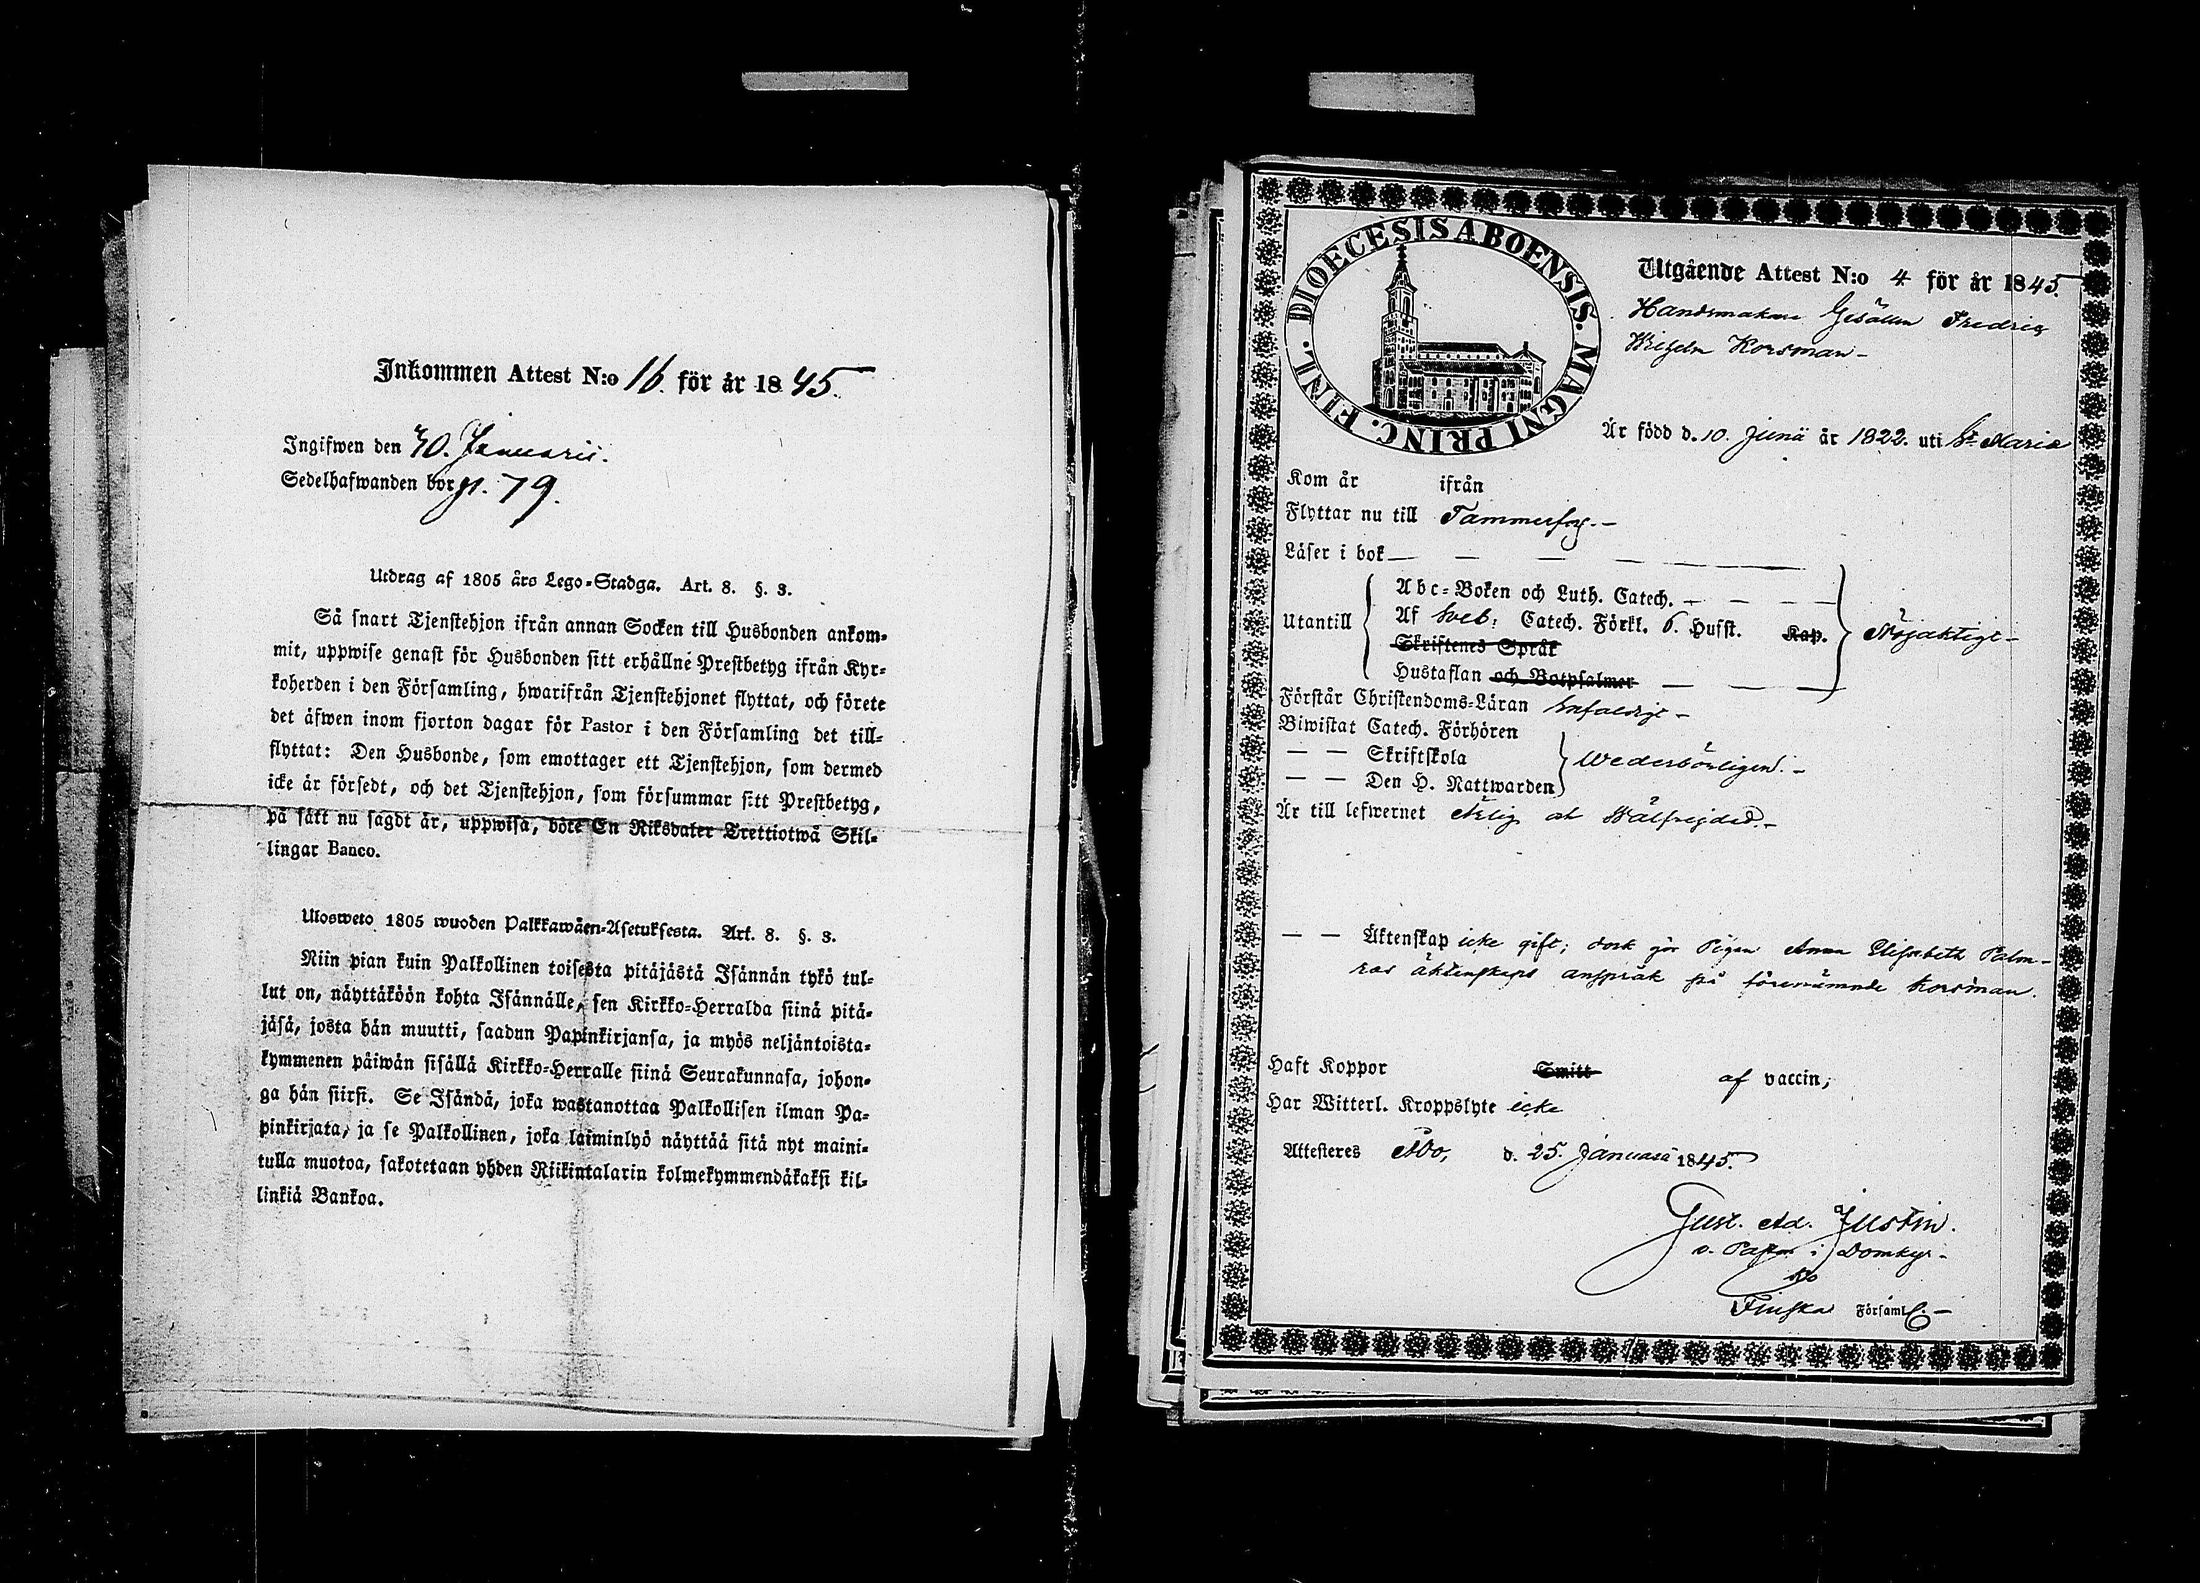 Inkommen Attest N:o 16. för år 1845.
Ingifwen den 30. Januarii.
Sedelhafwanden bor gl. 79.
Utdrag af 1805 års Lego-Stadga. Art. 8. §. 3.
Så snart Tjenstehjon ifrån annan Socken till Husbonden ankom-
mit, uppwise genast för Husbonden sitt erhållne Prestbetyg ifrån Kyr-
koherden i den Församling, hwarifrån Tjenstehjonet flyttat, och förete
det äfwen inom fjorton dagar för Pastor i den Församling det till-
flyttat: Den Husbonde, som emottager ett Tjenstehjon, som dermed
icke är försedt, och det Tjenstehjon, som försummar sitt Prestbetyg,
på sätt nu sagdt är, uppwisa, böte En Riksdaler Trettiotwå Skil-
lingar Banco.
Ulosweto 1805 wuoden Palkkawäen-Asetuksesta. Art. 8. §. 3.
Niin pian kuin Palkollinen toisesta pitäjästä Isännän tykö tul-
lut on, näyttäköön kohta Isännälle, sen Kirkko-Herralda siinä pitä-
jäsä, josta hän muutti, saadun Papinkirjansa, ja myös neljäntoista-
kymmenen päiwän sisällä Kirkko-Herralle siinä Seurakunnasa, johon-
ga hän siirsi. Se Isändä, joka wastanottaa Palkollisen ilman Pa-
pinkirjata, ja se Palkollinen, joka laiminlyö näyttää sitä nyt maini-
tulla muotoa, sakotetaan yhden Riikintalarin kolmekymmendäkaksi kil-
linkiä Bankoa.
DIOECESIS ABOENSIS. MAGNI PRINC. FINL.
Utgående Attest N:o 4 för år 1845.
Handsmakare Gesällen Fredric
Wilhelm Korsman-
Är född d. 10. Junii år 1822. uti St Maria
Kom år ifrån
Flyttar nu till Tammerfors.-
Läser i bok — — — — —
Utantill
Abc-Boken och Luth. Catech. — — —
Af Sveb: Catech. Förkl. 6. Husst. Kap.
Skriftenes Språk
Hustaflan och Botpsalmer — — —
Nöjaktigt-
Förstår Christendoms-Läran Enfaldigt-
Biwistat Catech. Förhören
— — Skriftskola
— — Den H. Nattwarden
Wederbörligen.-
Är till lefwernet Ärlig och Wälfrejdad.-
— — Äktenskap icke gift; dock gör Pigan Anna Elisabeth Palm-
ros äktenskaps anspråk på förenämnde Korsman.
Haft Koppor Smitt af vaccin;
Har Witterl. Kroppslyte icke
Attesteres Åbo, d. 25. Januarii 1845.
Gust. Ad. Justin.
v. Pastor i Domkyr-
ko
Finska Församl.-